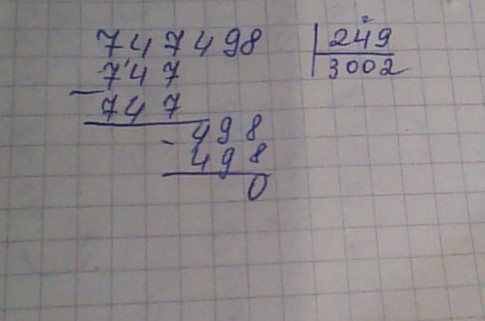 747498 249
747 3002
- 747
- 498
498
0